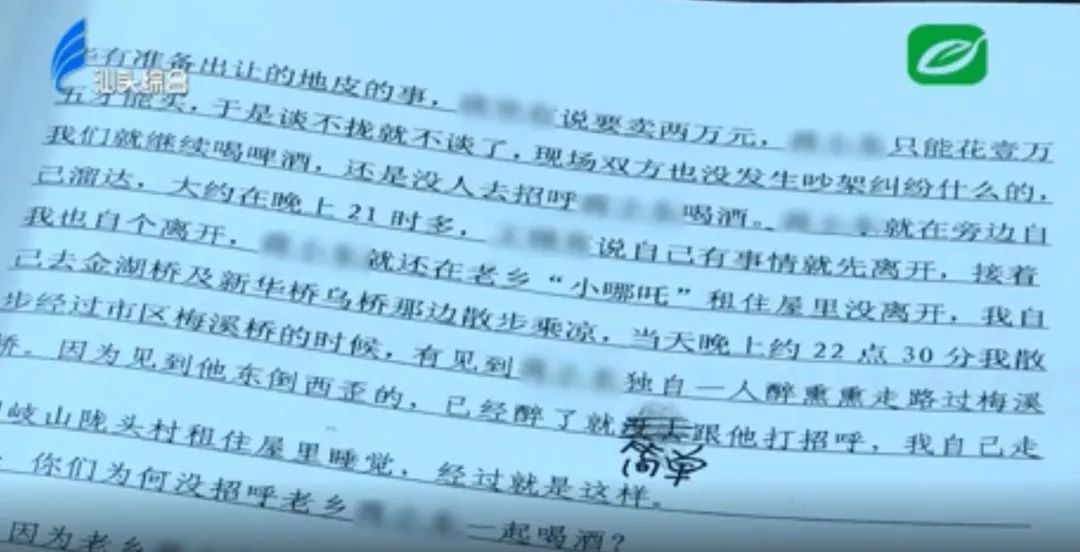 汕头综合
华有准备出让的地皮的事，说要卖两万元，只能花壹万
五才能买，于是谈不拢就不谈了，现场双方也没发生吵架纠纷什么的，
我们就继续喝啤酒，还是没人去招呼喝酒。就在旁边自
己溜达，大约在晚上 21 时多，说自己有事情就先离开，接着
我也自个离开，就还在老乡“小哪吒”租住屋里没离开，我自
己去金湖桥及新华桥乌桥那边散步乘凉，当天晚上约 22 点 30 分我散
步经过市区梅溪桥的时候，有见到独自一人醉熏熏走路过梅溪
桥。因为见到他东倒西歪的，已经醉了就没去跟他打招呼，我自己走
简单
岐山陇头村租住屋里睡觉，经过就是这样。
：你们为何没招呼老乡一起喝酒？
因为老乡